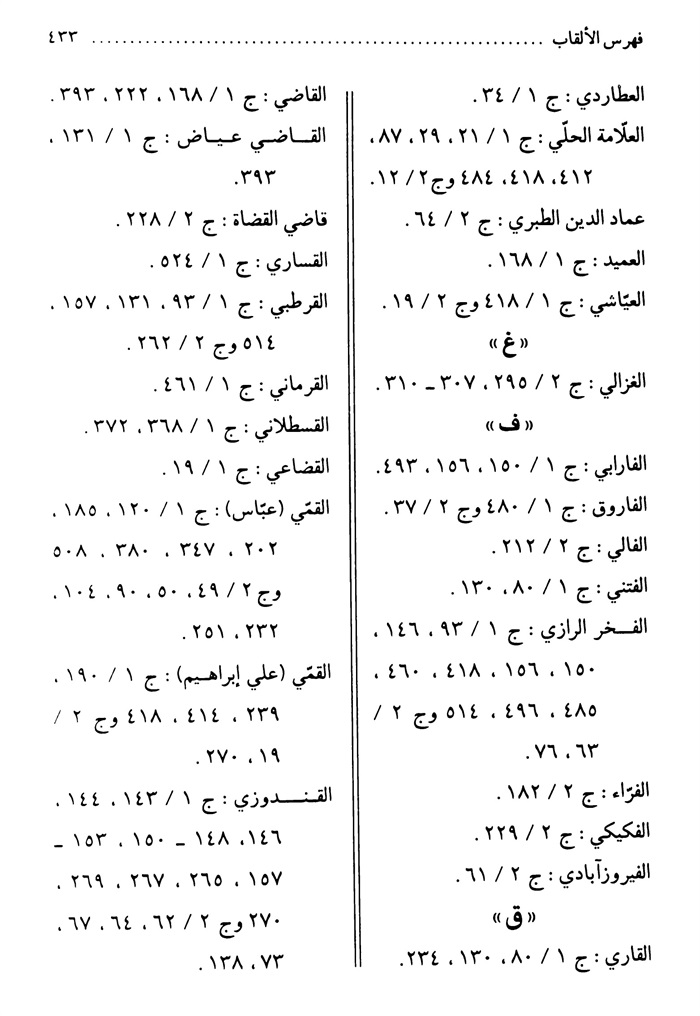 فهرس الألقاب ........................................................... ٤٣٣
العطاردي : ج ١ / ٣٤.
العلّامة الحلّي : ج ١ / ٢١ ، ٢٩ ، ٨٧ ،
٤١٢، ٤١٨، ٤٨٤ وج٢ / ١٢.
عماد الدين الطبري : ج ٢ / ٦٤ .
العميد : ج ١ / ١٦٨ .
العيّاشي : ج ١ / ٤١٨ وج ٢ / ١٩ .
«غ»
الغزالي : ج ٢ / ٢٩٥ ، ٣٠٧ ـ ٣١٠ .
«ف»
الفارابي : ج ١ / ١٥٠ ، ١٥٦ ، ٤٩٣.
الفاروق : ج ١ / ٤٨٠ وج ٢ / ٣٧ .
الفالي : ج ٢ / ٢١٢ .
الفتني : ج ١ / ٨٠ ، ١٣٠ .
الفـخر الرازي : ج ١ / ٩٣ ، ١٤٦ ،
١٥٠ ، ١٥٦ ، ٤١٨ ، ٤٦٠ ،
٤٨٥ ، ٤٩٦ ، ٥١٤ وج ٢ /
٦٣ ، ٧٦ .
الفرّاء : ج ٢ / ١٨٢ .
الفكيكي : ج ٢ / ٢٢٩ .
الفيروزآبادي : ج ٢ / ٦١ .
«ق»
القاري : ج ١ / ٨٠ ، ١٣٠ ، ٢٣٤.
القاضي : ج ١ / ١٦٨ ، ٢٢٢ ، ٣٩٣ .
القـاضـي عـيـاض : ج ١ / ١٣١ ،
٣٩٣.
قاضي القضاة : ج ٢ / ٢٢٨ .
القساري : ج ١ / ٥٢٤ .
القرطبي : ج ١ / ٩٣ ، ١٣١ ، ١٥٧ ،
٥١٤ وج ٢ / ٢٦٢ .
القرماني : ج ١ / ٤٦١ .
القسطلاني : ج ١ / ٣٦٨ ، ٣٧٢ .
القضاعي : ج ١ / ١٩ .
القمّي (عبّاس) : ج ١ / ١٢٠ ، ١٨٥ ،
٢٠٢ ، ٣٤٧ ، ٣٨٠ ، ٥٠٨
وج ٢ / ٤٩ ، ٥٠ ، ٩٠ ، ١٠٤ ،
٢٣٢ ، ٢٥١ .
القمّي (علي إبراهـيم) : ج ١ / ١٩٠ ،
٢٣٩ ، ٤١٤ ، ٤١٨ وج ٢ /
١٩ ، ٢٧٠ .
القـنـدوزي : ج ١ / ١٤٣ ، ١٤٤ ،
١٤٦، ١٤٨ ـ ١٥٠ ، ١٥٣ ـ
١٥٧ ، ٢٦٥ ، ٢٦٧ ، ٢٦٩ ،
٢٧٠ وج ٢ / ٦٢ ، ٦٤ ، ٦٧ ،
٧٣ ، ١٣٨ .